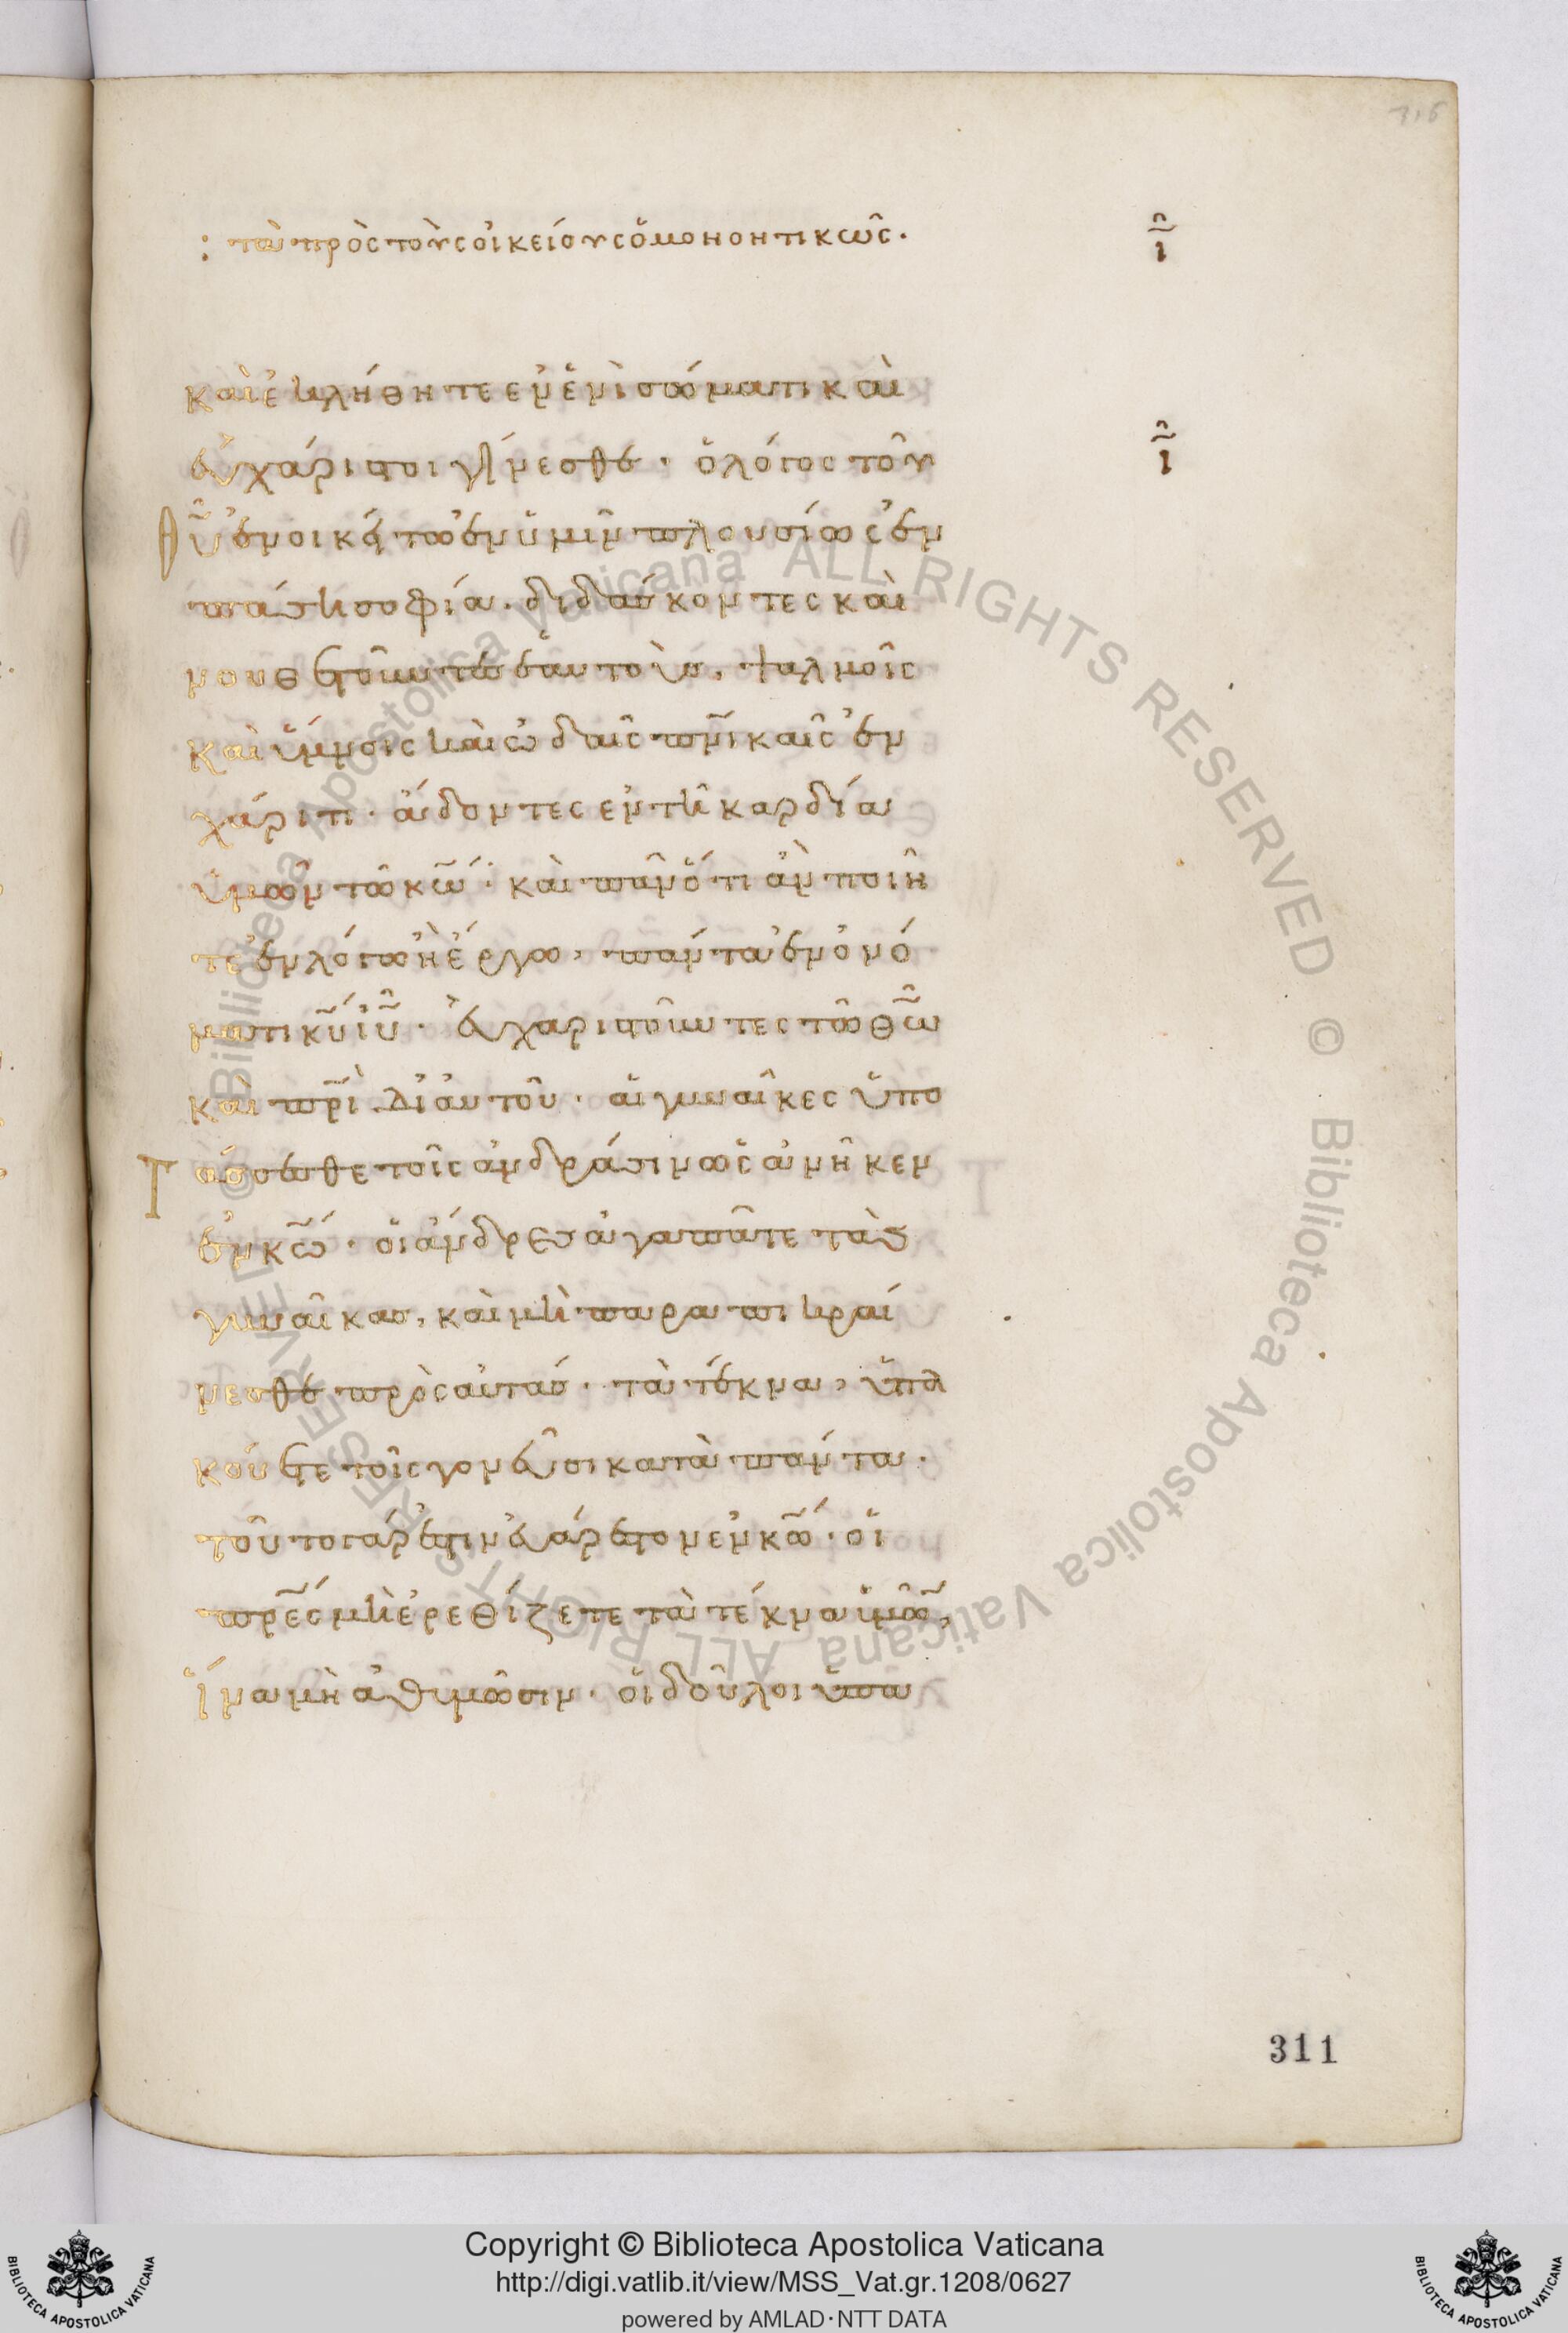 : τῶ πρὸς τοὺς οἰκείους ὁμονοητικῶς· ῖ
καὶ ἐκλήθητε ἐν ἑνὶ σώματι καὶ
εὐχάριστοι γίνεσθε· ὁ λόγος τοῦ ῖ
θῦ ἐνοικείτω ἐν ὑμῖν πλουσίως ἐν
πάση σοφία· διδάσκοντες καὶ
νουθετοῦντες ἑαυτούς, ψαλμοῖς
καὶ ὕμνοις καὶ ὠδαῖς πνικαῖς ἐν
χάριτι· ἄδοντες ἐν τῆ καρδία
ὑμῶν τῶ κω· καὶ πᾶν ὅ τι ἂν ποιῆ
τε ἐν λόγω ἢ ἐν ἔργω, πάντα ἐν ὀνό
ματι κυ ιυ· εὐχαριστοῦντες τῶ θω
καὶ πρι δι' αὐτοῦ· αἱ γυναῖκες ὑπο
τάσσεσθε τοῖς ἀνδράσιν ὡς ἀνῆκεν
ἐν κω· οἱ ἄνδρες ἀγαπᾶτε τὰς
γυναῖκας, καὶ μὴ παραπικραί
νεσθε πρὸς αὐτάς· τὰ τέκνα, ὑπα
κούετε τοῖς γονεῦσι κατὰ πάντα·
τοῦτο γάρ ἐστιν εὐάρεστον ἐν κω· οἱ
πρες μὴ ἐρεθίζετε τὰ τέκνα ὑμῶ,
ἵνα μὴ ἀθυμῶσιν· οἱ δοῦλοι ὑπα
311
Copyright © Biblioteca Apostolica Vaticana
http://digi.vatlib.it/view/MSS_Vat.gr.1208/0627
powered by AMLAD·NTT DATA
BIBLIOTECA APOSTOLICA VATICANA
BIBLIOTECA APOSTOLICA VATICANA
© Biblioteca Apostolica Vaticana ALL RIGHTS RESERVED © Biblioteca Apostolica Vaticana ALL RIGHTS RESERVED